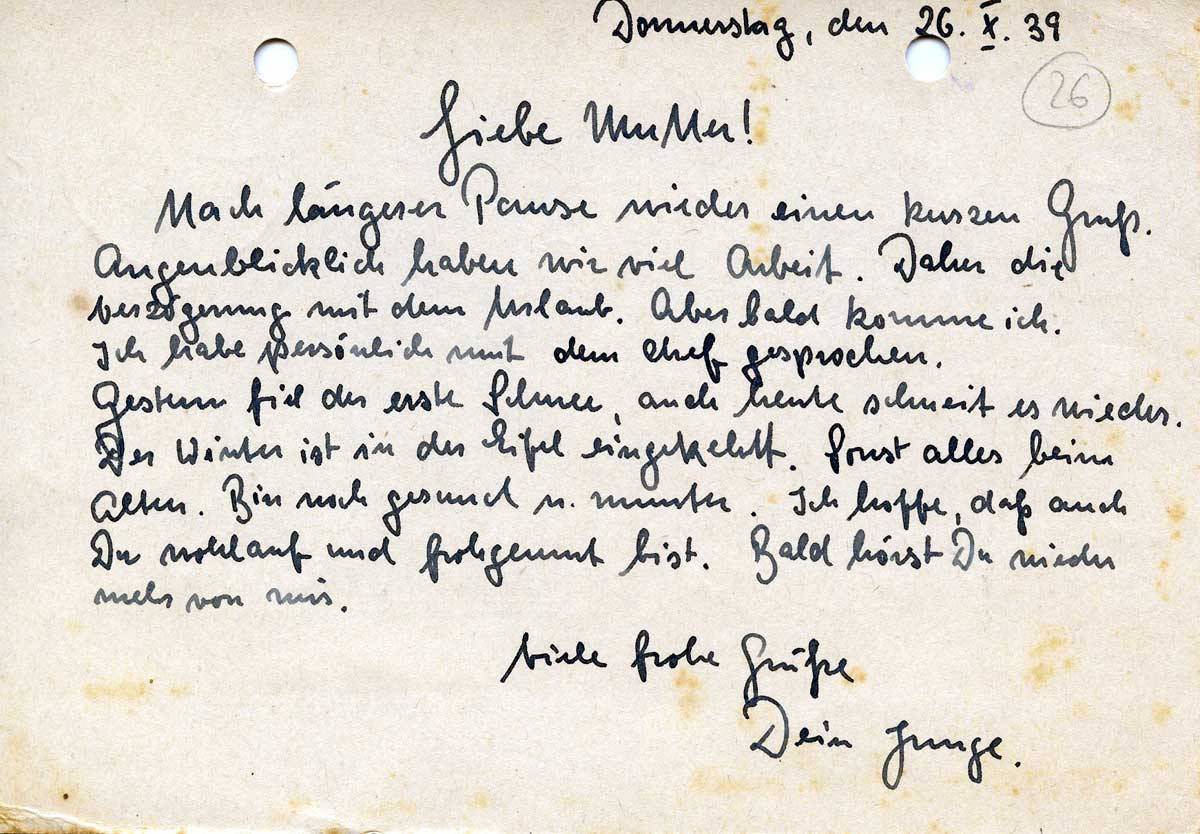 Donnerstag, den 26. X. 39
26
Liebe Mutter!
Nach längerer Pause wieder einen kurzen Gruß.
Augenblicklich haben wir viel Arbeit. Daher die
Verzögerung mit dem Urlaub. Aber bald komme ich.
Ich habe persönlich mit dem Chef gesprochen.
Gestern fiel der erste Schnee, auch heute schneit es wieder.
Der Winter ist in der Eifel eingekehrt. Sonst alles beim
Alten. Bin noch gesund u. munter. Ich hoffe, daß auch
Du wohlauf und frohgemut bist. Bald hörst Du wieder
mehr von mir.
Viele frohe Grüße
Dein Junge.